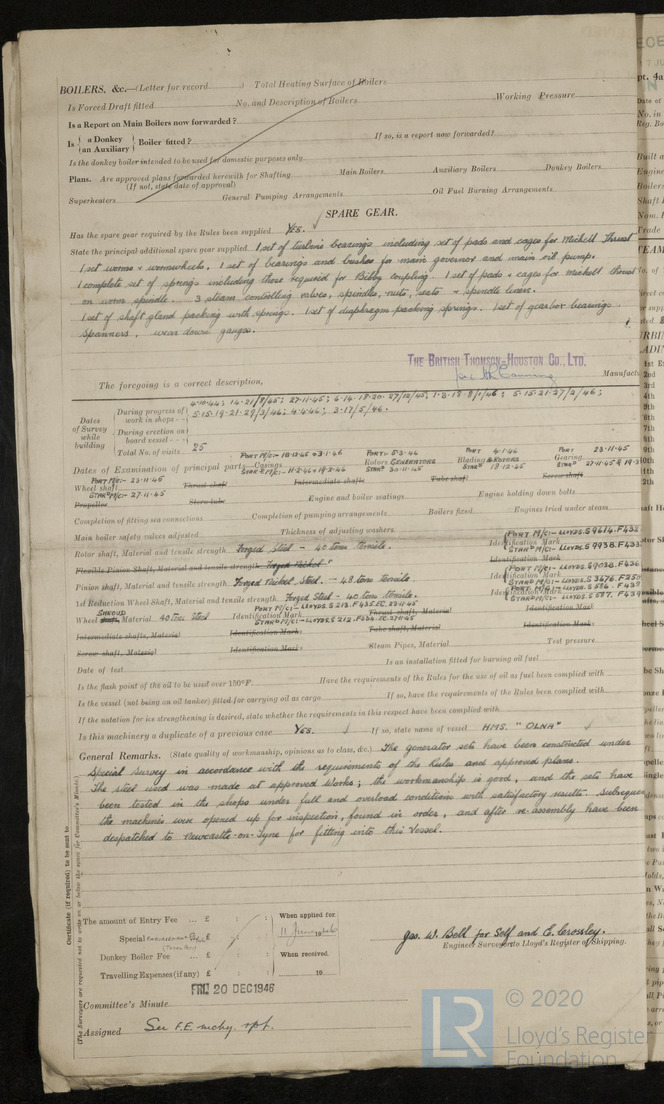 BOILERS, &c.—(Letter for record ) Total Heating Surface of Boilers
Is Forced Draft fitted No. and Description of Boilers Working Pressure
Is a Report on Main Boilers now forwarded?
Is { a Donkey / an Auxiliary } Boiler fitted? If so, is a report now forwarded?
Is the donkey boiler intended to be used for domestic purposes only
Plans. Are approved plans forwarded herewith for Shafting Main Boilers Auxiliary Boilers Donkey Boilers
(If not, state date of approval)
Superheaters General Pumping Arrangements Oil Fuel Burning Arrangements
SPARE GEAR.
Has the spare gear required by the Rules been supplied Yes.
State the principal additional spare gear supplied 1 set of turbine bearings including set of pads and cages for Michell Thrust
1 set worms & wormwheels, 1 set of bearings and bushes for main governor and main oil pump.
1 complete set of springs including those required for Bibby coupling. 1 set of pads & cages for Michell thrust
on worm spindle. 3 steam controlling valves, spindles, nuts, seats & spindle liners.
1 set of shaft gland packing with springs. 1 set of diaphragm packing springs. 1 set of gearbox bearings.
Spanners, wear down gauges.
THE BRITISH THOMSON-HOUSTON CO., LTD.
The foregoing is a correct description, Manufact
Dates of Survey while building
During progress of work in shops - - 4-10-44; 14-21/8/45; 27-11-45; 6-14-18-20-27/12/45; 1-3-18-8/1/46; 5-15-21-27/2/46;
5-15-19-21-29/3/46; 4/4/46; 3-17/5/46.
During erection on board vessel - - -
Total No. of visits 25
Dates of Examination of principal parts—Casings PORT M/C:- 18-12-45 & 3-1-46 Rotors GENERATORS PORT:- 5-3-46 STARD 30-11-45 Blading & ROTORS PORT 4-1-46 STARD 18-12-45 Gearing PORT 23-11-45
Wheel shaft PORT M/C:- 23-11-45 STARD M/C:- 27-11-45 Thrust shaft Intermediate shafts Tube shaft Screw shaft
Propeller Stern tube Engine and boiler seatings Engine holding down bolts
Completion of fitting sea connections Completion of pumping arrangements Boilers fixed Engines tried under steam
Main boiler safety valves adjusted Thickness of adjusting washers
Rotor shaft, Material and tensile strength Forged Steel - 40 tons tensile. Identification Mark PORT M/C:- LLOYDS. S 9614. F433 STARD M/C:- LLOYDS. S 9938. F433
Flexible Pinion Shaft, Material and tensile strength Forged Nickel Identification Mark
Pinion shaft, Material and tensile strength Forged Nickel Steel. - 48 tons tensile Identification Mark PORT M/C:- LLOYDS. S 9038. F436 STARD M/C:- LLOYDS. S 3676. F250
1st Reduction Wheel Shaft, Material and tensile strength Forged Steel - 40 tons tensile. Identification Mark
Wheel SHROUD shaft, Material 40 Tons Steel Identification Mark PORT M/C:- LLOYDS. S 213. F435. EC. 23-11-45 STARD M/C:- LLOYDS. S 212. F434. EC. 27-11-45 Thrust shaft, Material Identification Mark
Intermediate shafts, Material Identification Marks Tube shaft, Material Identification Mark
Screw shaft, Material Identification Mark Steam Pipes, Material Test pressure
Date of test Is an installation fitted for burning oil fuel
Is the flash point of the oil to be used over 150°F. Have the requirements of the Rules for the use of oil as fuel been complied with
Is the vessel (not being an oil tanker) fitted for carrying oil as cargo If so, have the requirements of the Rules been complied with
If the notation for ice strengthening is desired, state whether the requirements in this respect have been complied with
Is this machinery a duplicate of a previous case Yes. If so, state name of vessel HMS. "OLNA"
General Remarks. (State quality of workmanship, opinions as to class, &c.) The generator sets have been constructed under
Special Survey in accordance with the requirements of the Rules and approved plans.
The steel used was made at approved Works; the workmanship is good, and the sets have
been tested in the shops under full and overload conditions with satisfactory results. Subseque
the machines were opened up for inspection, found in order, and after re-assembly have been
despatched to Newcastle-on-Tyne for fitting into this Vessel.
Certificate (if required) to be sent to
(The Surveyors are requested not to write on or below the space for Committee's Minute.)
The amount of Entry Fee ... £ : : When applied for
Special £ : : 11 June 1946
Donkey Boiler Fee ... £ : : When received.
Travelling Expenses (if any) £ : : 19
Jas. W. Bell for Self and E. Crossley.
Engineer Surveyor to Lloyd's Register of Shipping.
FRI. 20 DEC 1946
Committee's Minute
Assigned See F.E. mchy. rpt.
LR © 2020
Lloyd's Register
Foundation